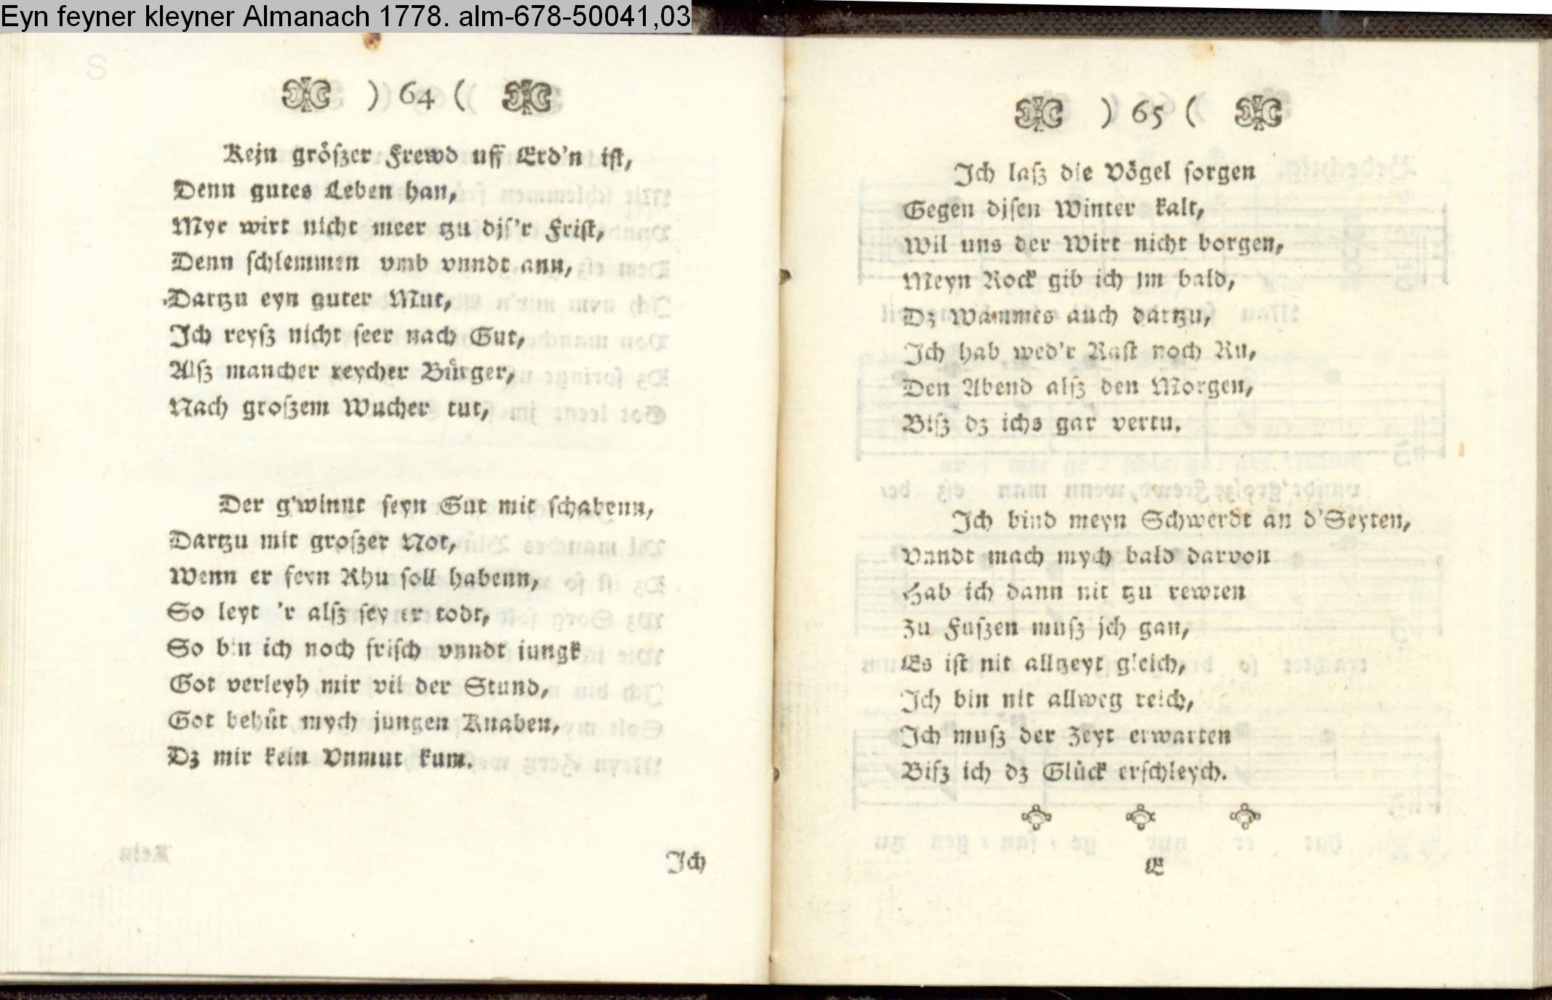 Eyn feyner kleyner Almanach 1778. alm-678-50041,03
) 64 (
Kejn größzer Frewd uff Erd'n ist,
Denn gutes Leben han,
Myr wirt nicht meer tzu djs'r Frist,
Denn schlemmen vmb vnndt ann,
Dartzu eyn guter Mut,
Ich reysz nicht seer nach Gut,
Alsz mancher reycher Bürger,
Nach groszem Wucher tut,
Der g'winnt seyn Gut mit schabenn,
Dartzu mit groszer Not,
Wenn er seyn Rhu soll habenn,
So leyt 'r alsz sey er todt,
So bin ich noch frisch vnndt jungk
Got verleyh mir vil der Stund,
Got behüt mych jungen Knaben,
Dz mir kein Vnmut kum.
Ich
) 65 (
Ich lasz die Vögel sorgen
Gegen disen Winter kalt,
Wil uns der Wirt nicht borgen,
Meyn Rock gib ich jm bald,
Dz Wammes auch dartzu,
Ich hab wed'r Rast noch Ru,
Den Abend alsz den Morgen,
Bisz dz ichs gar vertu.
Ich bind meyn Schwerdt an d'Seyten,
Vnndt mach mych bald darvon
Hab ich dann nit tzu rewten
Zu Fuszen musz jch gan,
Es ist nit alltzeyt gleich,
Ich bin nit allweg reich,
Ich musz der Zeyt erwarten
Bisz ich dz Glück erschleych.
E